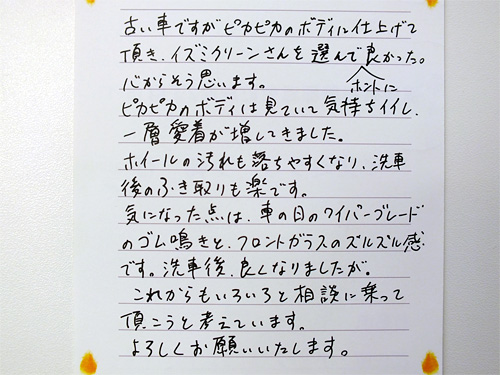 古い車ですがピカピカのボディに仕上げて
頂き、イズミクリーンさんを選んでホントに良かった。
心からそう思います。
ピカピカのボディは見ていて気持ちイイし、
一層愛着が増してきました。
ホイールの汚れも落ちやすくなり、洗車
後のふき取りも楽です。
気になった点は、車の目のワイパーブレード
のゴム鳴きと、フロントガラスのズルズル感
です。洗車後、良くなりましたが。
これからもいろいろと相談に乗って
頂こうと考えています。
よろしくお願いいたします。